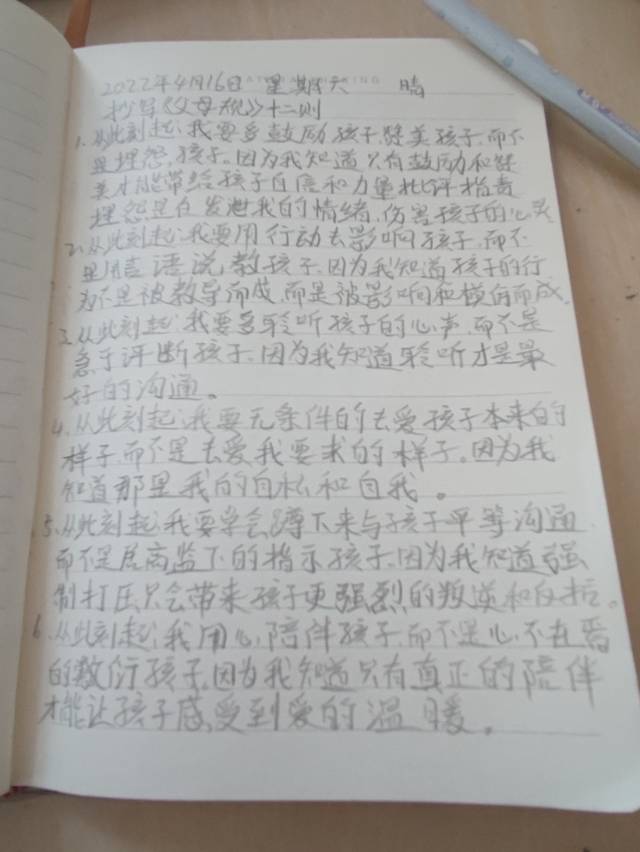 2022年4月16日 星期天 晴
抄写《父母规》十二则
1、从此刻起:我要多鼓励孩子,赞美孩子,而不
是埋怨孩子。因为我知道只有鼓励和赞
美才能带给孩子自信和力量批评指责
埋怨是在发泄我的情绪,伤害孩子的心灵
2、从此刻起:我要用行动去影响孩子,而不
是用言语说教孩子,因为我知道孩子的行
为不是被教导而成,而是被影响和模仿而成。
3、从此刻起:我要多聆听孩子的心声,而不是
急于评断孩子,因为我知道聆听才是最
好的沟通。
4、从此刻起:我要无条件的去爱孩子本来的
样子,而不是去爱我要求的样子。因为我
知道那是我的自私和自我。
5、从此刻起:我要学会蹲下来与孩子平等沟通
而不是居高监下的指示孩子,因为我知道强
制打压只会带来孩子更强烈的叛逆和反抗。
6、从此刻起:我用心陪伴孩子而不是心不在焉
的敷衍孩子,因为我知道只有真正的陪伴
才能让孩子感受到爱的温暖。